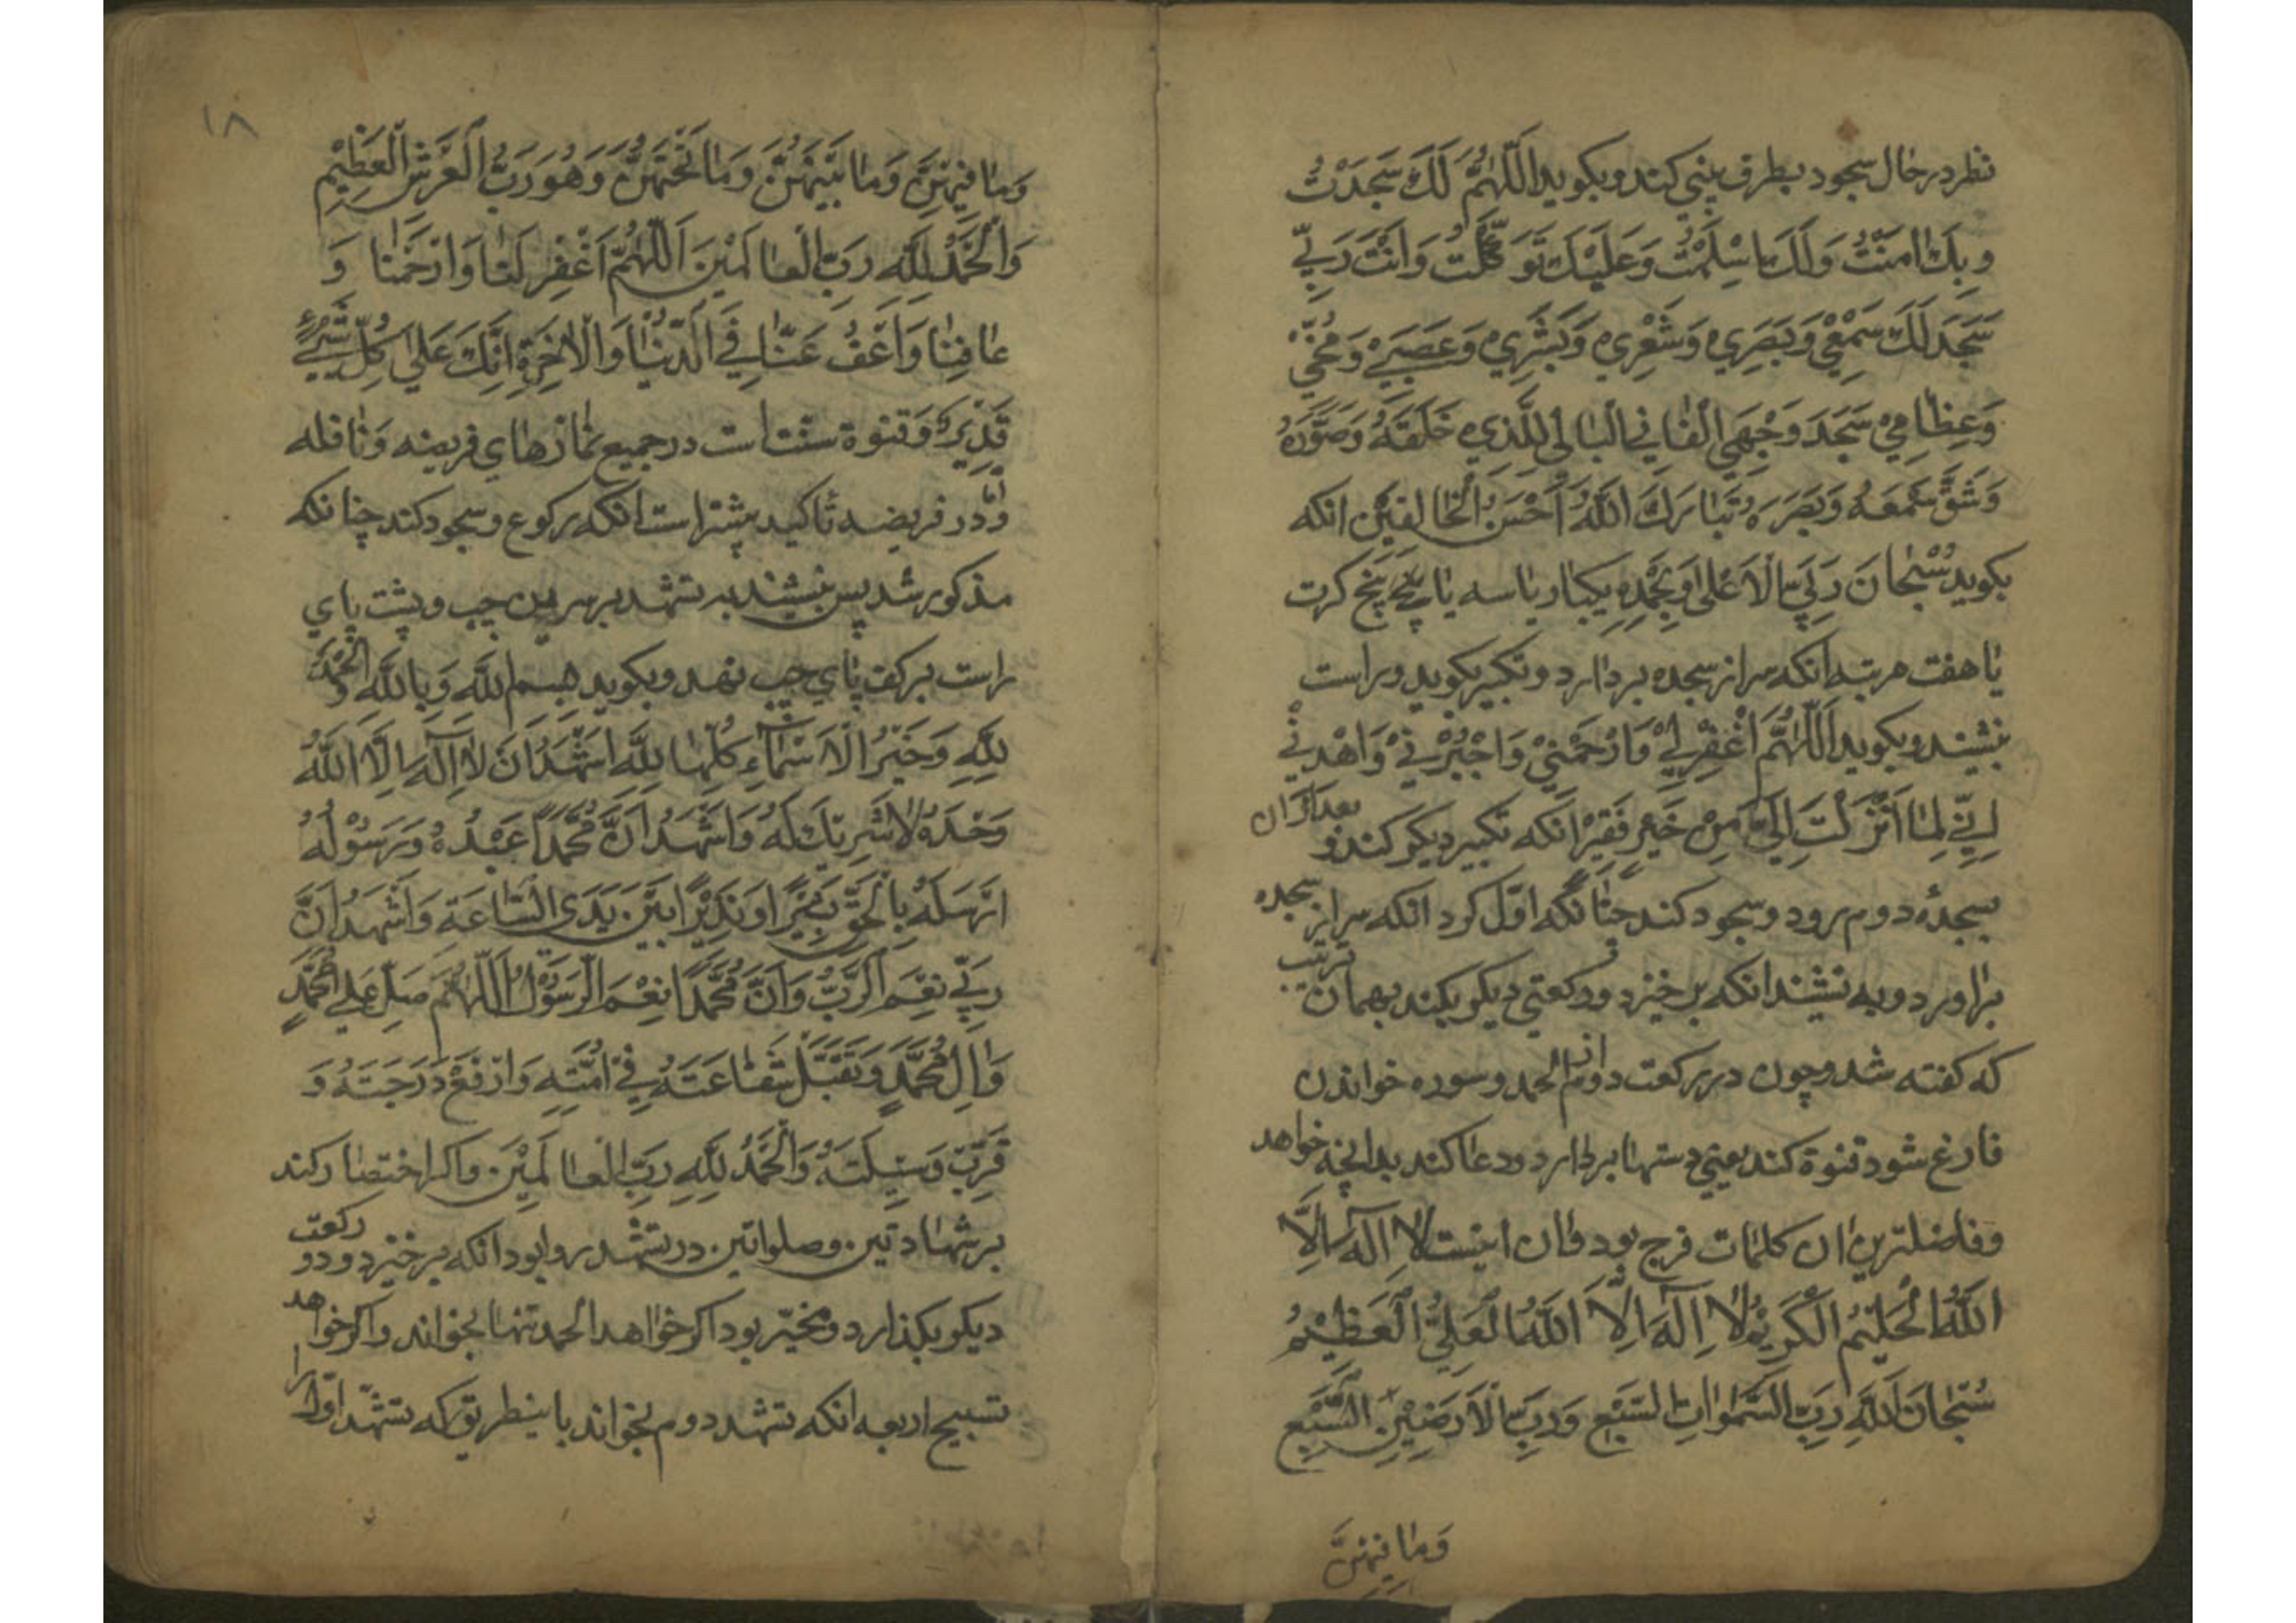 نظر در حال سجود بطرف بینی کند و بکوید اَللّٰهُمَّ لَكَ سَجَدْتُ
وَبِكَ اٰمَنْتُ وَلَكَ اَسْلَمْتُ وَعَلَيْكَ تَوَكَّلْتُ وَاَنْتَ رَبِّي
سَجَدَ لَكَ سَمْعِي وَبَصَرِي وَشَعْرِي وَبَشَرِي وَعَصَبِي وَمُخِّي
وَعِظَامِي سَجَدَ وَجْهِيَ الْفَانِي الْبَالِي لِلَّذِي خَلَقَهُ وَصَوَّرَهُ
وَشَقَّ سَمْعَهُ وَبَصَرَهُ تَبَارَكَ اللّٰهُ اَحْسَنُ الْخَالِقِيْنَ انکه
بکوید سُبْحَانَ رَبِّيَ الْاَعْلٰى وَبِحَمْدِهِ یکبار یا سه یا پنج کرت
یا هفت مرتبه انکه سر از سجده بردارد و تکبیر بکوید و راست
بنشیند و بکوید اَللّٰهُمَّ اغْفِرْلِيْ وَارْحَمْنِيْ وَاجْبُرْنِيْ وَاهْدِنِيْ
اِنِّي لِمَا اَنْزَلْتَ اِلَيَّ مِنْ خَيْرٍ فَقِيْرٌ انکه تکبیر دیکر کند و بعد از ان
بسجدهٔ دوم رود و سجود کند چنانکه اوّل کرد انکه سر از سجده
براورد و به نشیند انکه برخیزد و رکعتی دیکر بکند بهمان ترتیب
که کفته شد و چون در رکعت دوم از الحمد و سوره خواندن
فارغ شود قنوة کند یعنی دستها بردارد و دعا کند بدانچه خواهد
و فاضلترین ان کلمات فرج بود و ان اینست لَا اِلٰهَ اِلَّا
اللّٰهُ الْحَلِيْمُ الْكَرِيْمُ لَا اِلٰهَ اِلَّا اللّٰهُ الْعَلِيُّ الْعَظِيْمُ
سُبْحَانَ اللّٰهِ رَبِّ السَّمٰوَاتِ السَّبْعِ وَرَبِّ الْاَرَضِيْنَ السَّبْعِ
وَمَا فِيْهِنَّ
١٨
وَمَا فِيْهِنَّ وَمَا بَيْنَهُنَّ وَمَا تَحْتَهُنَّ وَهُوَ رَبُّ الْعَرْشِ الْعَظِيْمِ
وَالْحَمْدُ لِلّٰهِ رَبِّ الْعَالَمِيْنَ اَللّٰهُمَّ اغْفِرْ لَنَا وَارْحَمْنَا وَ
عَافِنَا وَاعْفُ عَنَّا فِي الدُّنْيَا وَالْاٰخِرَةِ اِنَّكَ عَلٰى كُلِّ شَيْءٍ
قَدِيْرٌ و قنوة سنّت است در جمیع نمازهای فریضه و نافله
و امّا در فریضه تاکید بیشتر است انکه رکوع و سجود کند چنانکه
مذکور شد پس بنشیند به تشهد بر سرین چپ و پشت پای
راست بر کف پای چپ نهد و بکوید بسم اللّٰه وَبِاللّٰهِ وَالْحَمْدُ
لِلّٰهِ وَخَيْرُ الْاَسْمَاءِ كُلُّهَا لِلّٰهِ اَشْهَدُ اَنْ لَا اِلٰهَ اِلَّا اللّٰهُ
وَحْدَهُ لَا شَرِيْكَ لَهُ وَاَشْهَدُ اَنَّ مُحَمَّدًا عَبْدُهُ وَرَسُوْلُهُ
اَرْسَلَهُ بِالْحَقِّ بَشِيْرًا وَنَذِيْرًا بَيْنَ يَدَيِ السَّاعَةِ وَاَشْهَدُ اَنَّ
رَبِّيْ نِعْمَ الرَّبُّ وَاَنَّ مُحَمَّدًا نِعْمَ الرَّسُوْلُ اَللّٰهُمَّ صَلِّ عَلٰى مُحَمَّدٍ
وَاٰلِ مُحَمَّدٍ وَتَقَبَّلْ شَفَاعَتَهُ فِيْ اُمَّتِهِ وَارْفَعْ دَرَجَتَهُ وَ
قَرِّبْ وَسِيْلَتَهُ وَالْحَمْدُ لِلّٰهِ رَبِّ الْعَالَمِيْنَ و اکر اختصار کند
بر شهادتین و صلواتین در تشهد روا بود انکه برخیزد و دو رکعت
دیکر بکذارد و مخیّر بود اکر خواهد الحمد تنها بخواند و اکر خواهد
تسبیح اربعه انکه تشهد دوم بخواند باینطریق که تشهّد اوّل را